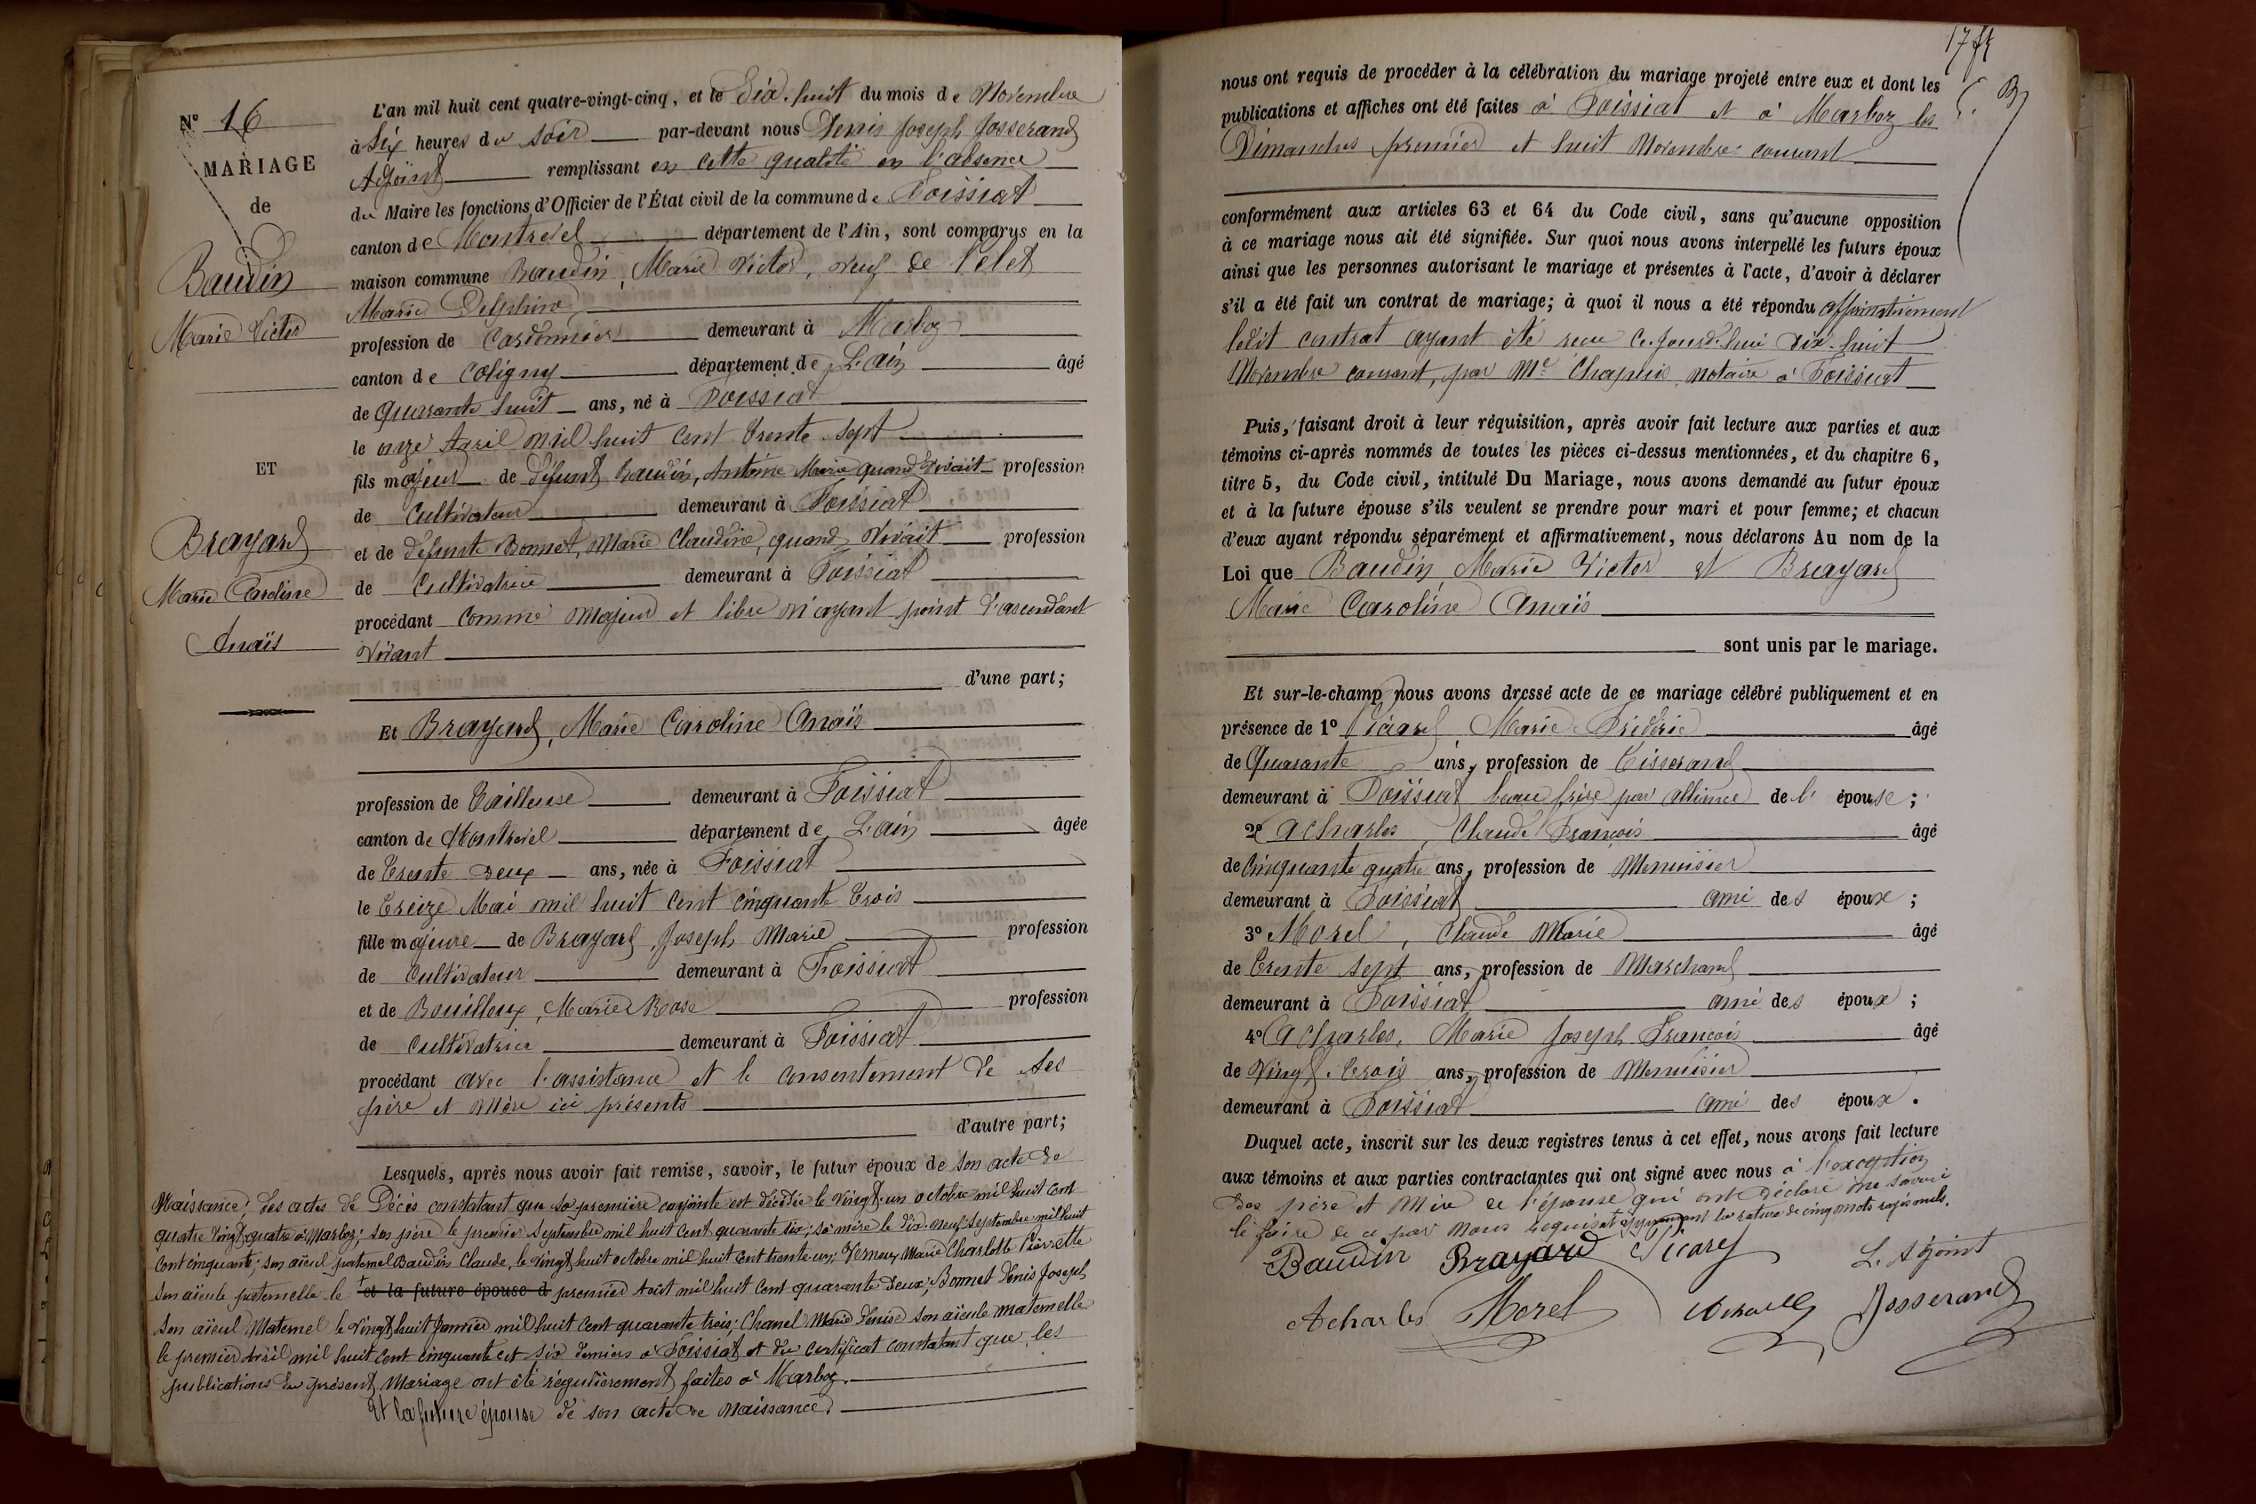 N° 16
MARIAGE
de
Baudin
Marie Victor
ET
Brayard
Marie Caroline
Anaïs
L'an mil huit cent quatre-vingt-cinq, et le dix-huit du mois de Novembre
à Six heures du soir par-devant nous Denis Joseph Josserand
Adjoint remplissant en cette qualité en l'absence
du Maire les fonctions d'Officier de l'État civil de la commune de Foissiat
canton de Montrevel département de l'Ain, sont comparus en la
maison commune Baudin, Marie Victor, veuf de Pelet
Marie Delphine
profession de Cordonnier demeurant à Marboz
canton de Coligny département de L'ain âgé
de quarante huit ans, né à Foissiat
le onze Avril mil huit cent trente-sept
fils majeur de défunt Baudin, Antoine Marie quand vivait profession
de Cultivateur demeurant à Foissiat
et de défunte Bonnet, Marie Claudine, quand vivait profession
de Cultivatrice demeurant à Foissiat
procédant comme majeur et libre n'ayant point d'ascendant
vivant
d'une part;
Et Brayard, Marie Caroline Anaïs
profession de Tailleuse demeurant à Foissiat
canton de Montrevel département de L'ain âgée
de trente deux ans, née à Foissiat
le treize Mai mil huit cent cinquante trois
fille majeure de Brayard, Joseph Marie profession
de Cultivateur demeurant à Foissiat
et de Bouilloux, Marie Rose profession
de Cultivatrice demeurant à Foissiat
procédant avec l'assistance et le consentement de ses
père et mère ici présents
d'autre part;
Lesquels, après nous avoir fait remise, savoir, le futur époux de son acte de
Naissance; des actes de Décès constatant que sa première conjointe est décédée le vingt-un octobre mil huit cent
quatre vingt quatre à Marboz; son père le premier Septembre mil huit cent quarante six; sa mère le dix-neuf Septembre mil huit
cent cinquante; son aïeul paternel Baudin Claude, le vingt huit octobre mil huit cent trente-un; Verneux Marie Charlotte Pierrette
son aïeule paternelle le et la future épouse d premier Août mil huit cent quarante deux; Bonnet Denis Joseph
son aïeul Maternel le vingt huit Janvier mil huit cent quarante trois; Chanel Marie Denise son aïeule maternelle
le premier Avril mil huit cent cinquante ces six derniers à Foissiat et du certificat constatant que les
publications du présent Mariage ont été régulièrement faites à Marboz.
Et la future épouse de son acte de naissance.
nous ont requis de procéder à la célébration du mariage projeté entre eux et dont les
publications et affiches ont été faites à Foissiat et à Marboz les
Dimanches premier et huit Novembre courant
conformément aux articles 63 et 64 du Code civil, sans qu'aucune opposition
à ce mariage nous ait été signifiée. Sur quoi nous avons interpellé les futurs époux
ainsi que les personnes autorisant le mariage et présentes à l'acte, d'avoir à déclarer
s'il a été fait un contrat de mariage; à quoi il nous a été répondu affirmativement
ledit contrat ayant été reçu ce-jourd'hui dix-huit
Novembre courant, par Me Chapuis notaire à Foissiat
Puis, faisant droit à leur réquisition, après avoir fait lecture aux parties et aux
témoins ci-après nommés de toutes les pièces ci-dessus mentionnées, et du chapitre 6,
titre 5, du Code civil, intitulé Du Mariage, nous avons demandé au futur époux
et à la future épouse s'ils veulent se prendre pour mari et pour femme; et chacun
d'eux ayant répondu séparément et affirmativement, nous déclarons Au nom de la
Loi que Baudin, Marie Victor et Brayard
Marie Caroline Anaïs
sont unis par le mariage.
Et sur-le-champ nous avons dressé acte de ce mariage célébré publiquement et en
présence de 1° Picard, Marie Frédéric âgé
de Quarante ans, profession de Tisserand
demeurant à Foissiat beau frère par alliance de l' épouse;
2° Acharles, Claude François âgé
de cinquante quatre ans, profession de Menuisier
demeurant à Foissiat ami des époux;
3° Morel, Claude Marie âgé
de trente sept ans, profession de Marchand
demeurant à Foissiat ami des époux;
4° Acharles, Marie Joseph François âgé
de vingt-trois ans, profession de Menuisier
demeurant à Foissiat ami des époux.
Duquel acte, inscrit sur les deux registres tenus à cet effet, nous avons fait lecture
aux témoins et aux parties contractantes qui ont signé avec nous à l'exception
des père et mère de l'épouse qui ont déclaré ne savoir
le faire de ce par nous requis et approuvant la rature de cinq mots rayés nuls.
Baudin Brayard Picard L. Adjoint
Acharles Morel Josserand